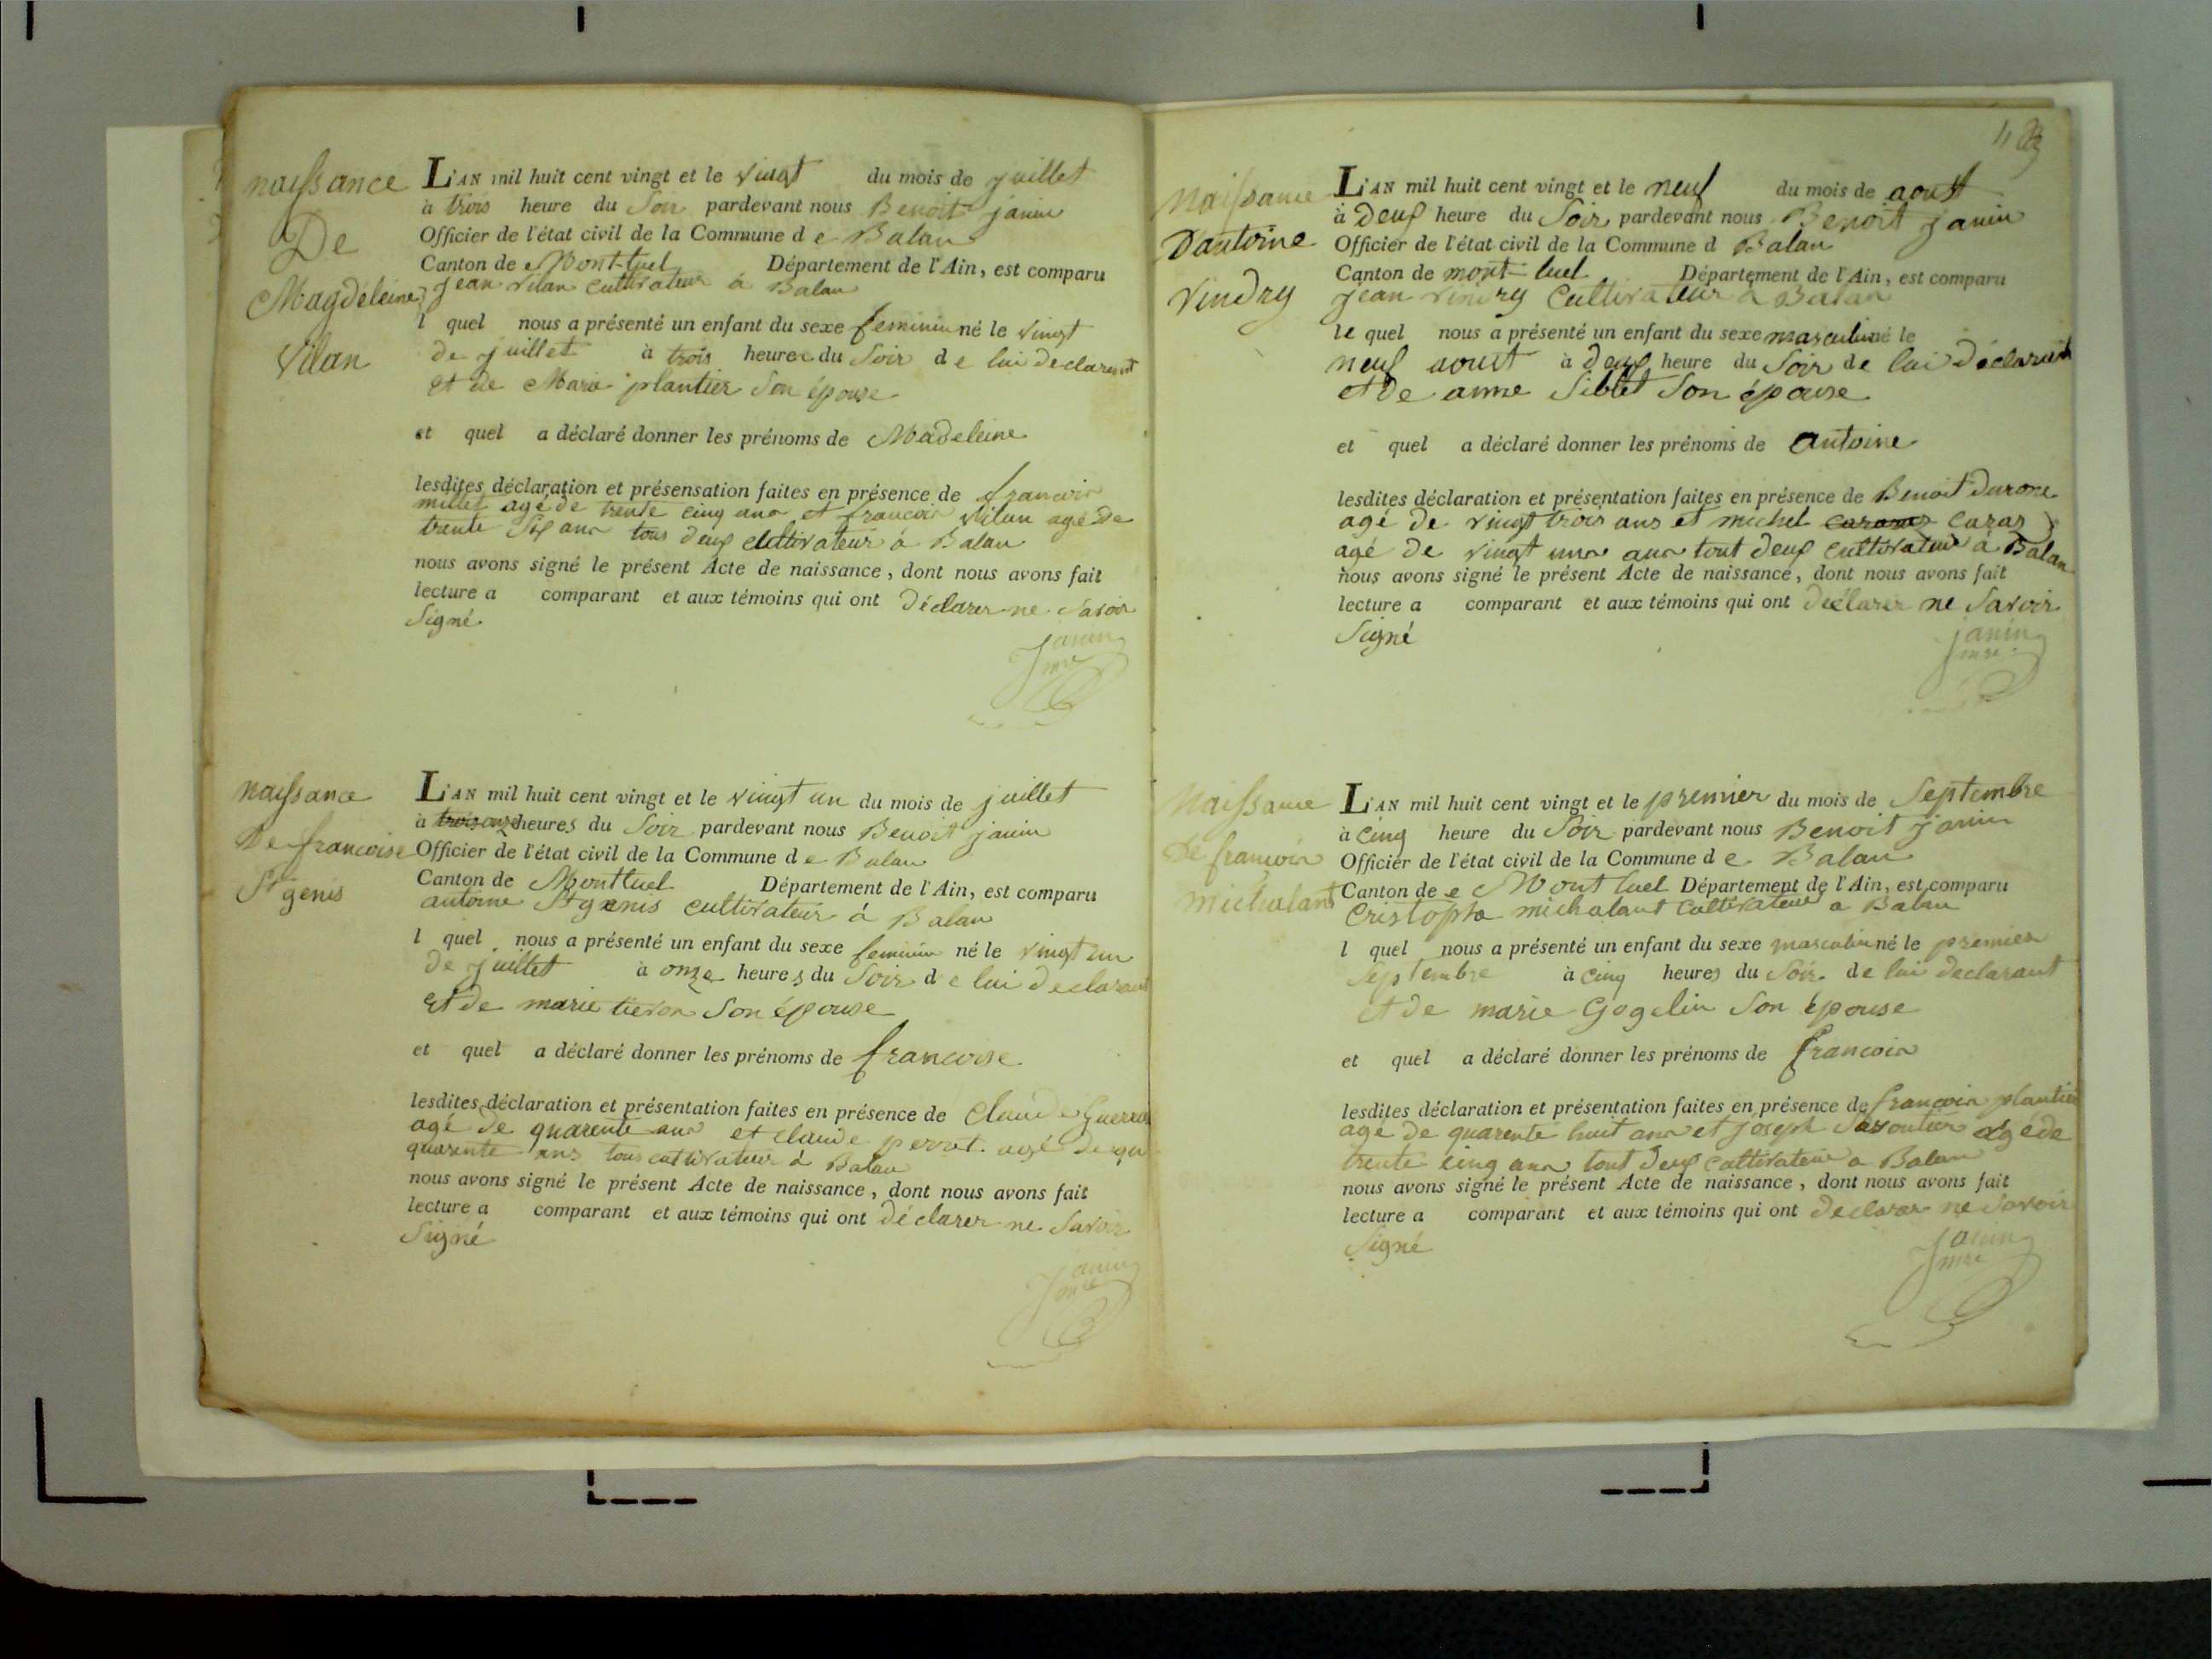 naissance
De
Magdéleine
vilan
L'AN mil huit cent vingt et le vingt du mois de juillet
à trois heure du Soir pardevant nous Benoit janin
Officier de l'état civil de la Commune d e Balan
Canton de Mont-luel Département de l'Ain, est comparu
jean vilan cultivateur à Balan
l quel nous a présenté un enfant du sexe feminin né le vingt
de juillet à trois heures du Soir d e lui declarant
et de Marie plantier Son épouse
et quel a déclaré donner les prénoms de Madeleine
lesdites déclaration et présensation faites en présence de francois
millet agé de trente cinq ans et francois vilan agé de
trente Six ans tous deux cultivateur à Balan
nous avons signé le présent Acte de naissance, dont nous avons fait
lecture a comparant et aux témoins qui ont Déclarer ne Savoir
Signé
janin
mre
naissance
De francoise
St genis
L'AN mil huit cent vingt et le vingt un du mois de juillet
à trois onze heures du Soir pardevant nous Benoit janin
Officier de l'état civil de la Commune d e Balan
Canton de Montluel Département de l'Ain, est comparu
antoine St genis cultivateur à Balan
l quel nous a présenté un enfant du sexe feminin né le vingt un
de juillet à onze heures du Soir d e lui declarant
et de marie Son épouse
et quel a déclaré donner les prénoms de francoise
lesdites déclaration et présentation faites en présence de Claude
agé de quarente ans et claude agé de qu
quarente ans tous cultivateur à Balan
nous avons signé le présent Acte de naissance, dont nous avons fait
lecture a comparant et aux témoins qui ont déclarer ne Savoir
Signé
janin
mre
11
Naissance
Dantoine
vindry
L'AN mil huit cent vingt et le neuf du mois de aoust
à Deux heure du Soir pardevant nous Benoit janin
Officier de l'état civil de la Commune d Balan
Canton de mont-luel Département de l'Ain, est comparu
jean vindry Cultivateur à Balan
le quel nous a présenté un enfant du sexe masculin né le
neuf aoust à Deux heure du Soir de lui déclarant
et De anne Siblet Son épouse
et quel a déclaré donner les prénoms de antoine
lesdites déclaration et présentation faites en présence de Benoit
agé de vingt trois ans et michel cazas
agé de vingt une ans tout deux cultivateur à Balan
nous avons signé le présent Acte de naissance, dont nous avons fait
lecture a comparant et aux témoins qui ont déclarer ne Savoir
Signé
janin
mre
Naissance
De francois
michalant
L'AN mil huit cent vingt et le premier du mois de Septembre
à cinq heure du Soir pardevant nous Benoit janin
Officier de l'état civil de la Commune d e Balan
Canton de e Mont luel Département de l'Ain, est comparu
Cristopha michalant cultivateur a Balan
l quel nous a présenté un enfant du sexe masculin né le premier
Septembre à cinq heures du Soir de lui declarant
et de marie Gogelin Son épouse
et quel a déclaré donner les prénoms de francois
lesdites déclaration et présentation faites en présence de francois plantier
agé de quarente huit ans et joseph agé de
trente cinq ans tout deux cultivateur a Balan
nous avons signé le présent Acte de naissance, dont nous avons fait
lecture a comparant et aux témoins qui ont declarer ne Savoir
Signé
janin
mre